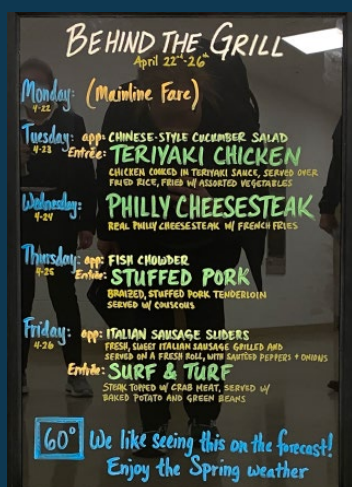 BEHIND THE GRILL
April 22nd-26th
Monday: (Mainline Fare)
4-22
Tuesday: app: CHINESE-STYLE CUCUMBER SALAD
4-23 Entrée: TERIYAKI CHICKEN
CHICKEN COOKED IN TERIYAKI SAUCE, SERVED OVER
FRIED RICE, FRIED W/ ASSORTED VEGETABLES
Wednesday: PHILLY CHEESESTEAK
4-24 REAL PHILLY CHEESESTEAK W/ FRENCH FRIES
Thursday: app: FISH CHOWDER
4-25 Entrée: STUFFED PORK
BRAIZED, STUFFED PORK TENDERLOIN
SERVED W/ COUSCOUS
Friday: app: ITALIAN SAUSAGE SLIDERS
4-26 FRESH, SWEET ITALIAN SAUSAGE GRILLED AND
SERVED ON A FRESH ROLL, WITH SAUTÉED PEPPERS + ONIONS
Entrée: SURF & TURF
STEAK TOPPED W/ CRAB MEAT, SERVED W/
BAKED POTATO AND GREEN BEANS
60° We like seeing this on the forecast!
Enjoy the Spring weather